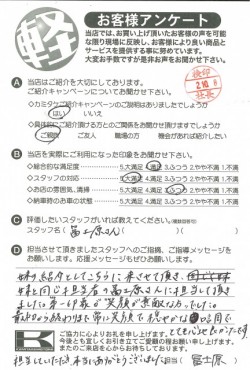 軽
お客様アンケート
当店では、お買い上げ頂いたお客様の声を可能
な限り現場に反映し、お客様により良い商品と
サービスを提供する事に努めております。
大変お手数ですが是非お声をお聞かせ下さい。
A 当店はご紹介を大切にしております。
ご紹介キャンペーンについてお聞かせ下さい。
ご紹介キャンペーンのご説明はありましたでしょうか
はい いいえ
ご親戚 ご友人 職場の方 機会があれば紹介したい
B 当店を実際にご利用になった印象をお聞かせ下さい。
◇総合的な満足度 5.大満足 4.満足 3.ふつう 2.やや不満 1.不満
◇スタッフの対応 5.大満足 4.満足 3.ふつう 2.やや不満 1.不満
◇お店の雰囲気、清掃 5.大満足 4.満足 3.ふつう 2.やや不満 1.不満
◇納車時のお車の状態 5.大満足 4.満足 3.ふつう 2.やや不満 1.不満
C 評価したいスタッフがいれば教えてください。
スタッフ名( 富士原さん )
D 担当させて頂きましたスタッフへのご指摘、ご指導メッセージを
お願いします。応援メッセージもぜひお願いします。
姉の紹介としてこちらに来させて頂き、
姉と同じ担当者の富士原さんに担当して頂き
ました。第一印象が笑顔が素敵な方でした。
とても心地良かったです。
ご協力に心よりお礼を申し上げます。
今後とも宜しくお引き立てご愛顧の程お願い申し上げます。
またのご来店を心よりお待ちしております。
担当していただき、本当にありがとうございました。
担当( 富士原 )